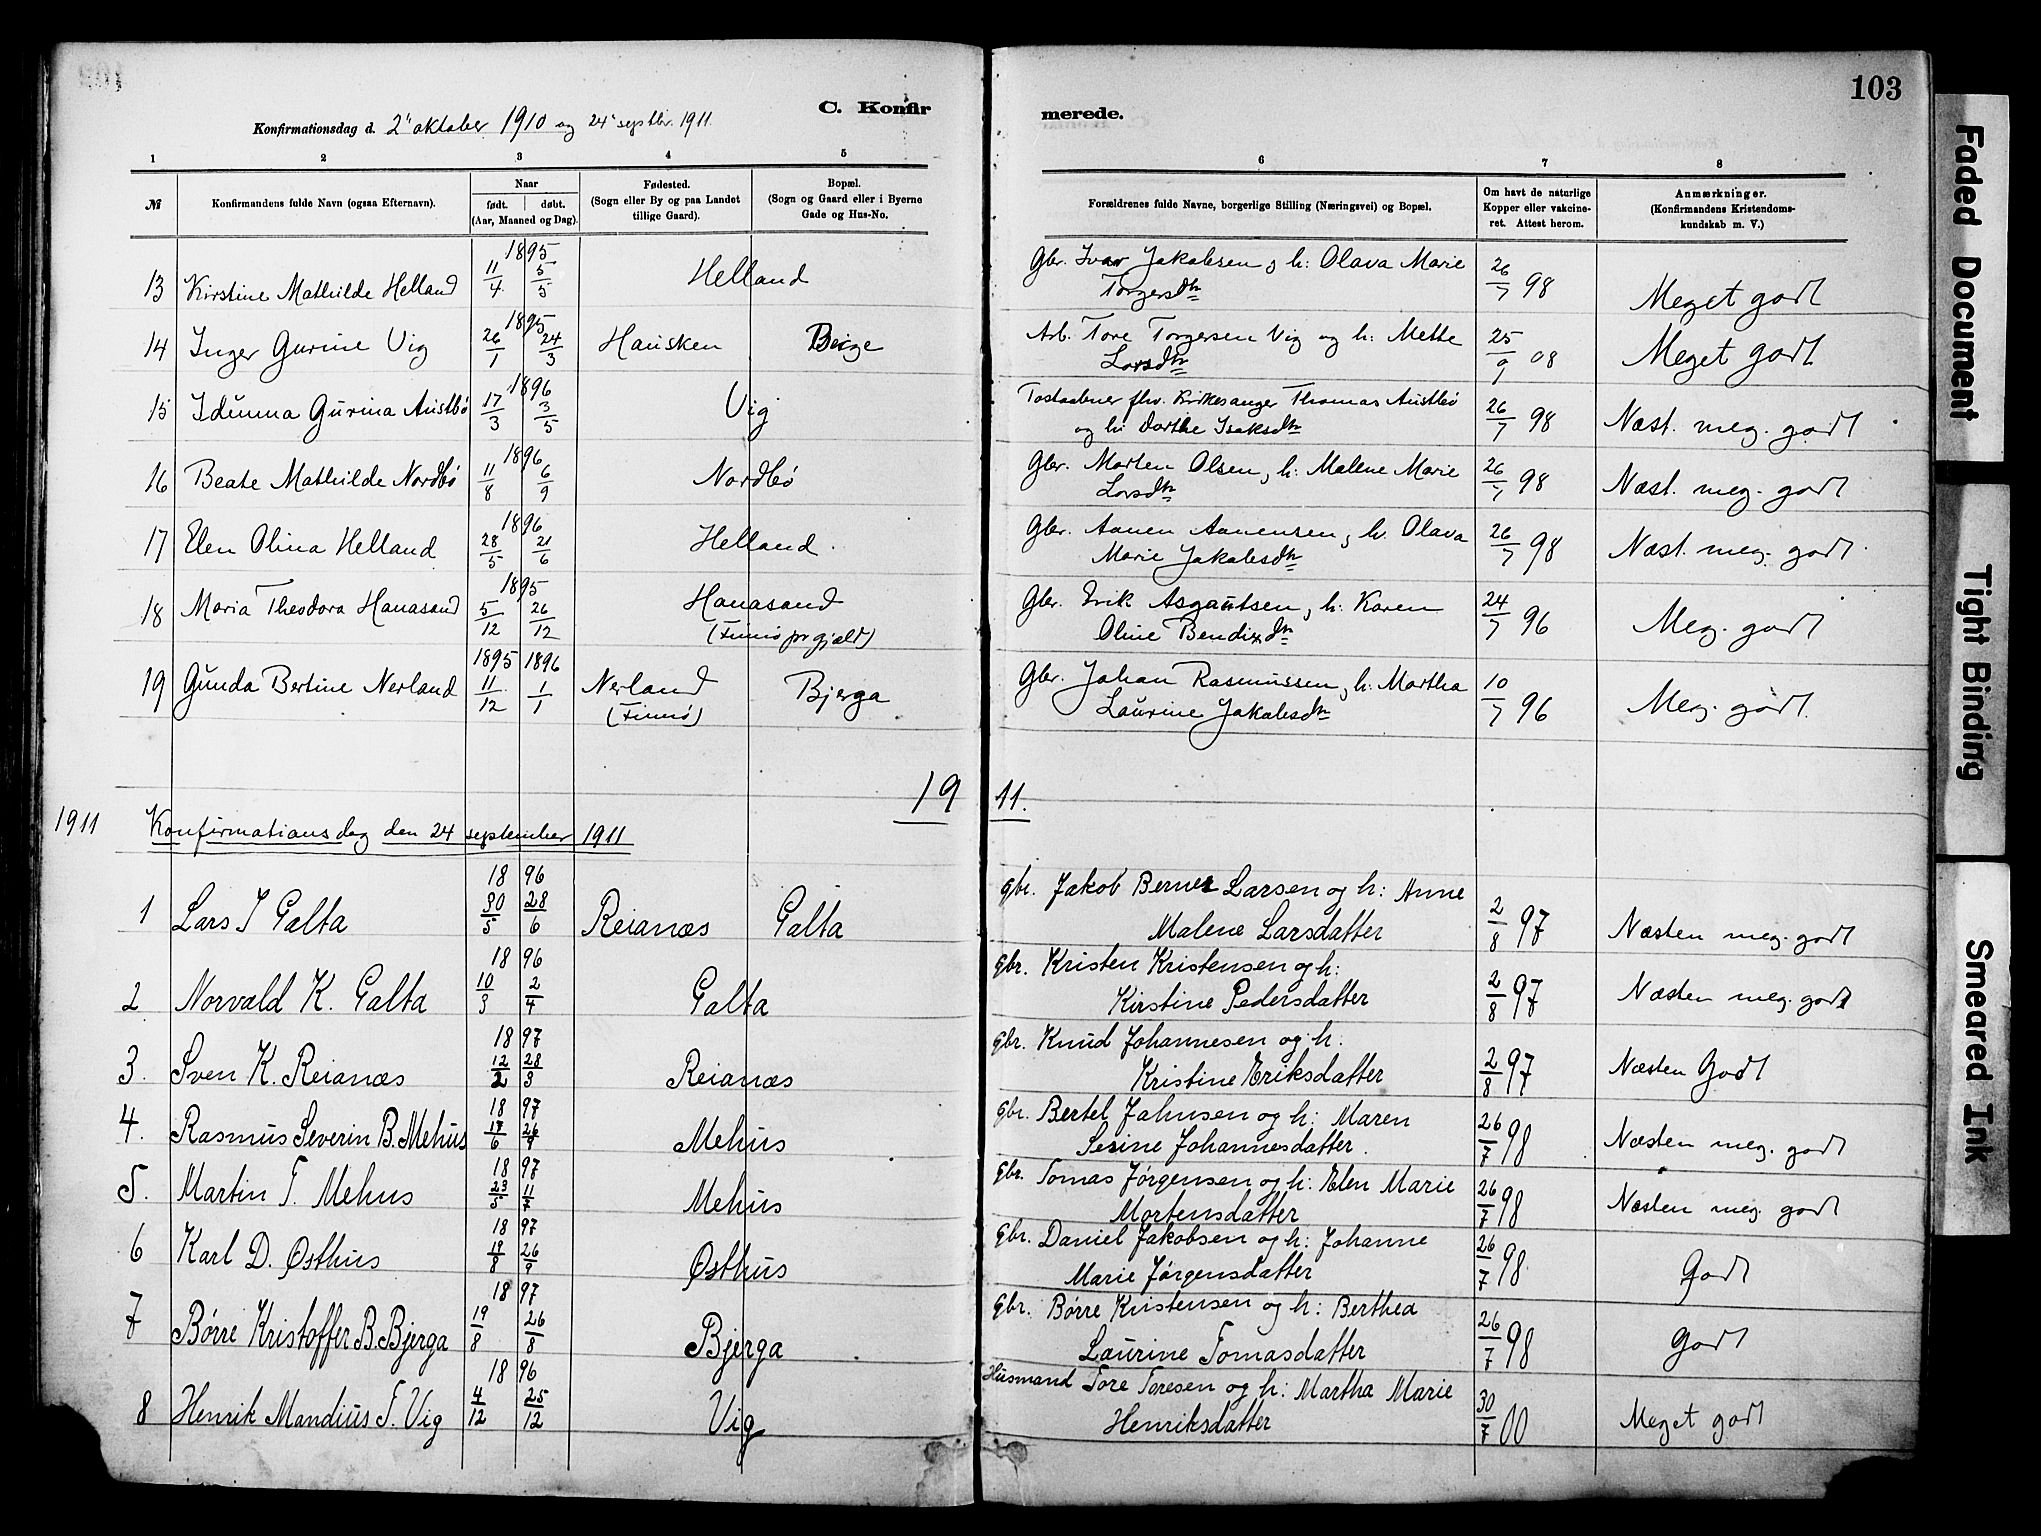 103
C. Konfir
merede.
Konfirmationsdag d. 2' oktober 1910 og 24' septbr. 1911.
1 2 3 4 5 6 7 8
№
Konfirmandens fulde Navn (ogsaa Efternavn).
Naar
født. døbt.
(Aar, Maaned og Dag).
Fødested.
(Sogn eller By og paa Landet
tillige Gaard).
Bopæl.
(Sogn og Gaard eller i Byerne
Gade og Hus-No.
Forældrenes fulde Navne, borgerlige Stilling (Næringsvei) og Bopæl.
Om havt de naturlige
Kopper eller vakcine-
ret. Attest herom.
Anmærkninger.
(Konfirmandens Kristendoms-
kundskab m. V.)
1895
13 Kirstine Mathilde Helland 11/4 5/5 Helland Gbr. Ivar Jakobsen, h: Olava Marie
Torgersdtr 26/7 98 Meget godt
1895
14 Inger Gurine Vig 26/1 24/3 Hausken Berge Arb. Tore Torgersen Vig og h: Mette
Larsdtr 25/9 08 Meget godt
1896
15 Idunna Gurina Austbø 17/3 3/5 Vig Postaabner fhv. Kirkesanger Thomas Austbø
og h: Dorthe Isaksdtr 26/7 98 Næst. meg. godt
1896
16 Beate Mathilde Nordbø 11/8 6/9 Nordbø Gbr. Morten Olsen, h: Malene Marie
Larsdtr 26/7 98 Næst. meg. godt
1896
17 Elen Olina Helland 28/5 21/6 Helland. Gbr. Aanen Aanensen, h. Olava
Marie Jakobsdtr 26/7 98 Næst. meg. godt
1895
18 Maria Theodora Hanasand 5/12 26/12 Hanasand
(Finnø prgjæld) Gbr. Erik Asgautsen, h: Karen
Oline Bendixdtr 24/7 96 Meg. godt
1895 1896
19 Gunda Bertine Nerland 11/12 1/1 Nerland
(Finnø) Bjerga Gbr. Johan Rasmussen, h: Martha
Laurine Jakobsdtr 10/7 96 Meg. godt.
19 11.
1911 Konfirmationsdag den 24 september 1911
18 96
1 Lars J Galta 30/5 28/6 Reianæs Galta gbr. Jakob Berner Larsen og h: Anne
Malene Larsdatter 2/8 97 Næsten meg. godt
18 96
2 Norvald K. Galta 10/3 2/4 Galta gbr. Kristen Kristensen og h:
Kirstine Pedersdatter 2/8 97 Næsten meg. godt
18 97
3. Sven K. Reianæs 12/2 28/3 Reianæs gbr. Knud Johannesen og h.
Kristine Eriksdatter 2/8 97 Næsten Godt
18 97
4. Rasmus Severin B. Mehus Mehus gbr. Bertel Jahnsen og h: Maren
Sesine Johannesdatter. 26/7 98 Næsten meg. godt
18 97
5. Martin T. Mehus 23/5 11/7 Mehus gbr. Tomas Jørgensen og h: Elen Marie
Mortensdatter 26/7 98 Næsten meg. godt
18 97
6 Karl D. Østhus 19/8 26/9 Østhus gbr. Daniel Jakobsen og h: Johanne
Marie Jørgensdatter 26/7 98 Godt
18 97
7 Børre Kristoffer B. Bjerga 19/8 26/8 Bjerga gbr. Børre Kristensen og h: Berthea
Laurine Tomasdatter 26/7 98 Godt
18 96
8 Henrik Mandius T. Vig 4/12 25/12 Vig Husmand Tore Toresen og h: Martha Marie
Henriksdatter 30/7 00 Meget godt
Faded Document
Tight Binding
Smeared Ink